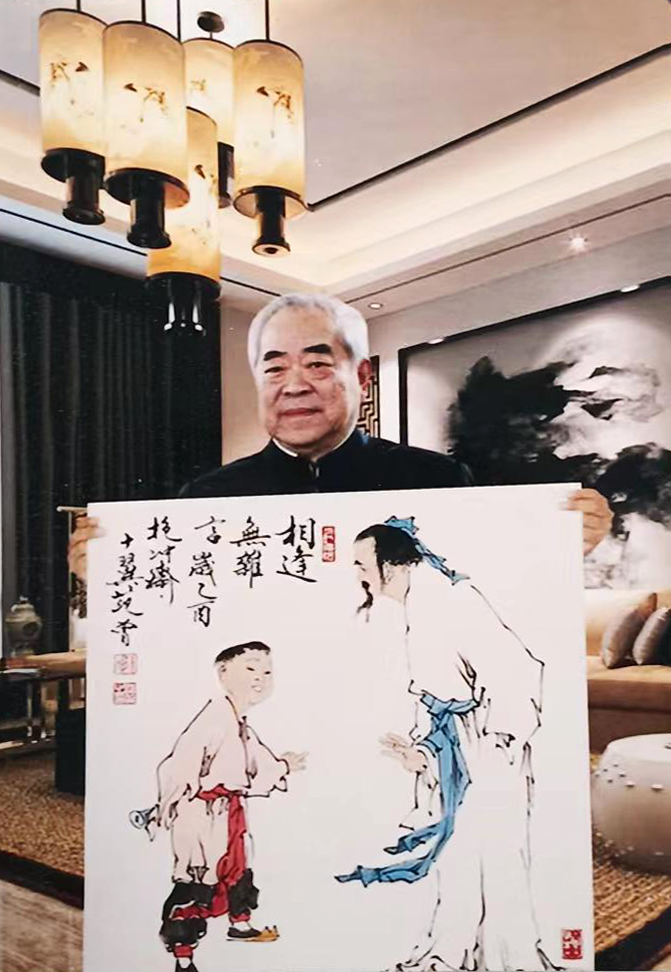 相逢
無雜
言歲乙酉
抱冲齋
十翼范曾